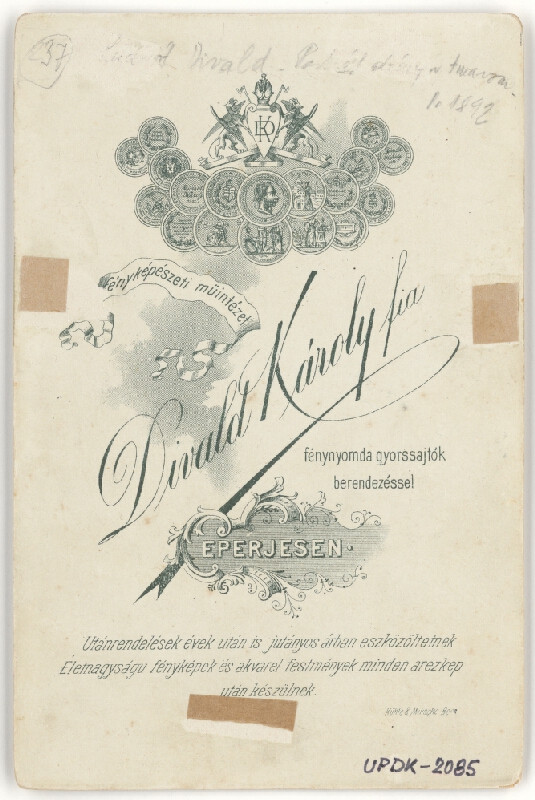 237
Divald
1892
KD
fényképészeti műintézet
Divald Károly fia
fénynyomda gyorssajtók
berendezéssel
EPERJESEN
Utánrendelések évek után is jutányos árban eszközöltetnek
Életnagyságu fényképek és akvarel festmények minden arczkép
után készülnek.
UPDK-2085